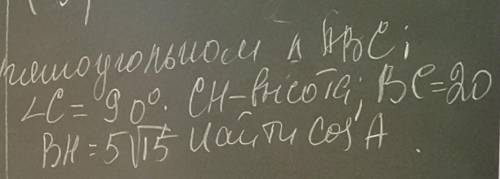 прямоугольном Δ ABC;
∠C = 90°. CH-высота; BC=20
BH = 5√15 Найти cos A.